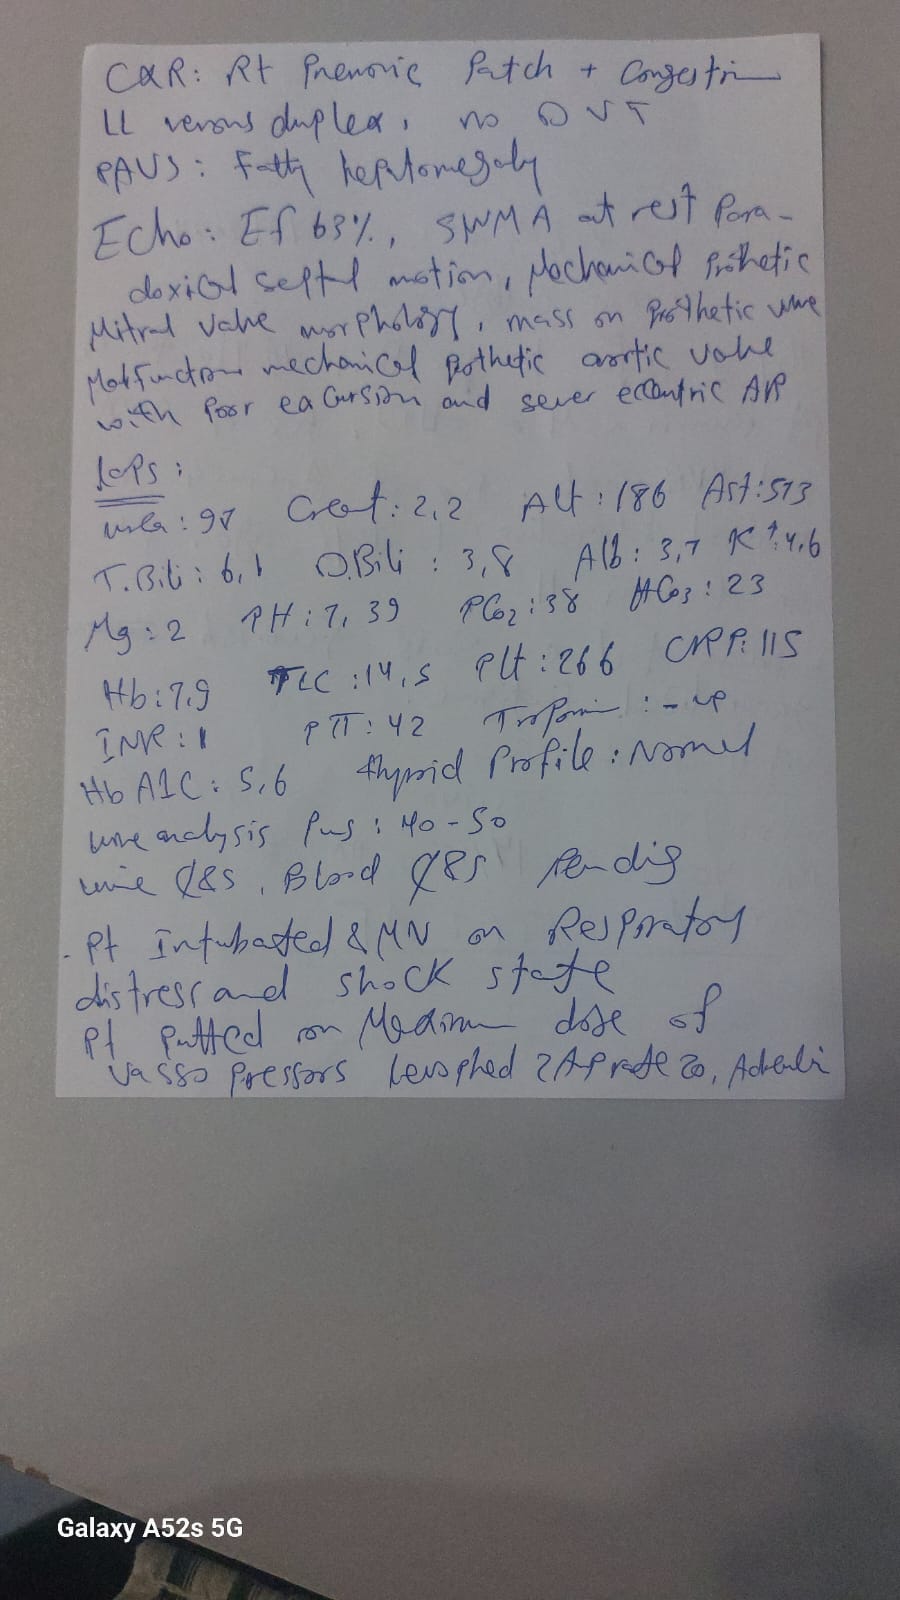 CXR: Rt Pnemonic Patch + Congestion
LL venous duplex, no DVT
PAUS: Fatty hepatomegaly
Echo: EF 63%, SWMA at rest Para-
doxical septal motion, Mechanical Prothetic
Mitral Valve morphology, mass on Prosthetic valve
Malfunction mechanical prothetic aortic valve
with Poor excursion and sever eccentric AR
laps:
urea: 97 Creat: 2,2 Alt: 186 Ast: 513
T.Bili: 6,1 D.Bili: 3,8 Alb: 3,7 K: 4,6
Mg: 2 PH: 7,39 PCo2: 38 HCo3: 23
Hb: 7,9 TLC: 14,5 Plt: 266 CRP: 115
INR: 1 PTT: 42 Troponin: -ve
Hb A1C: 5,6 thyroid Profile: Normal
urine analysis Pus: 40-50
urine C&S, Blood C&S Pendig
- Pt Intubated & MV on Respiratory
distress and shock state
Pt Putted on Medium dose of
Vasso Pressors Levophed 2AP rate 20,
Galaxy A52s 5G